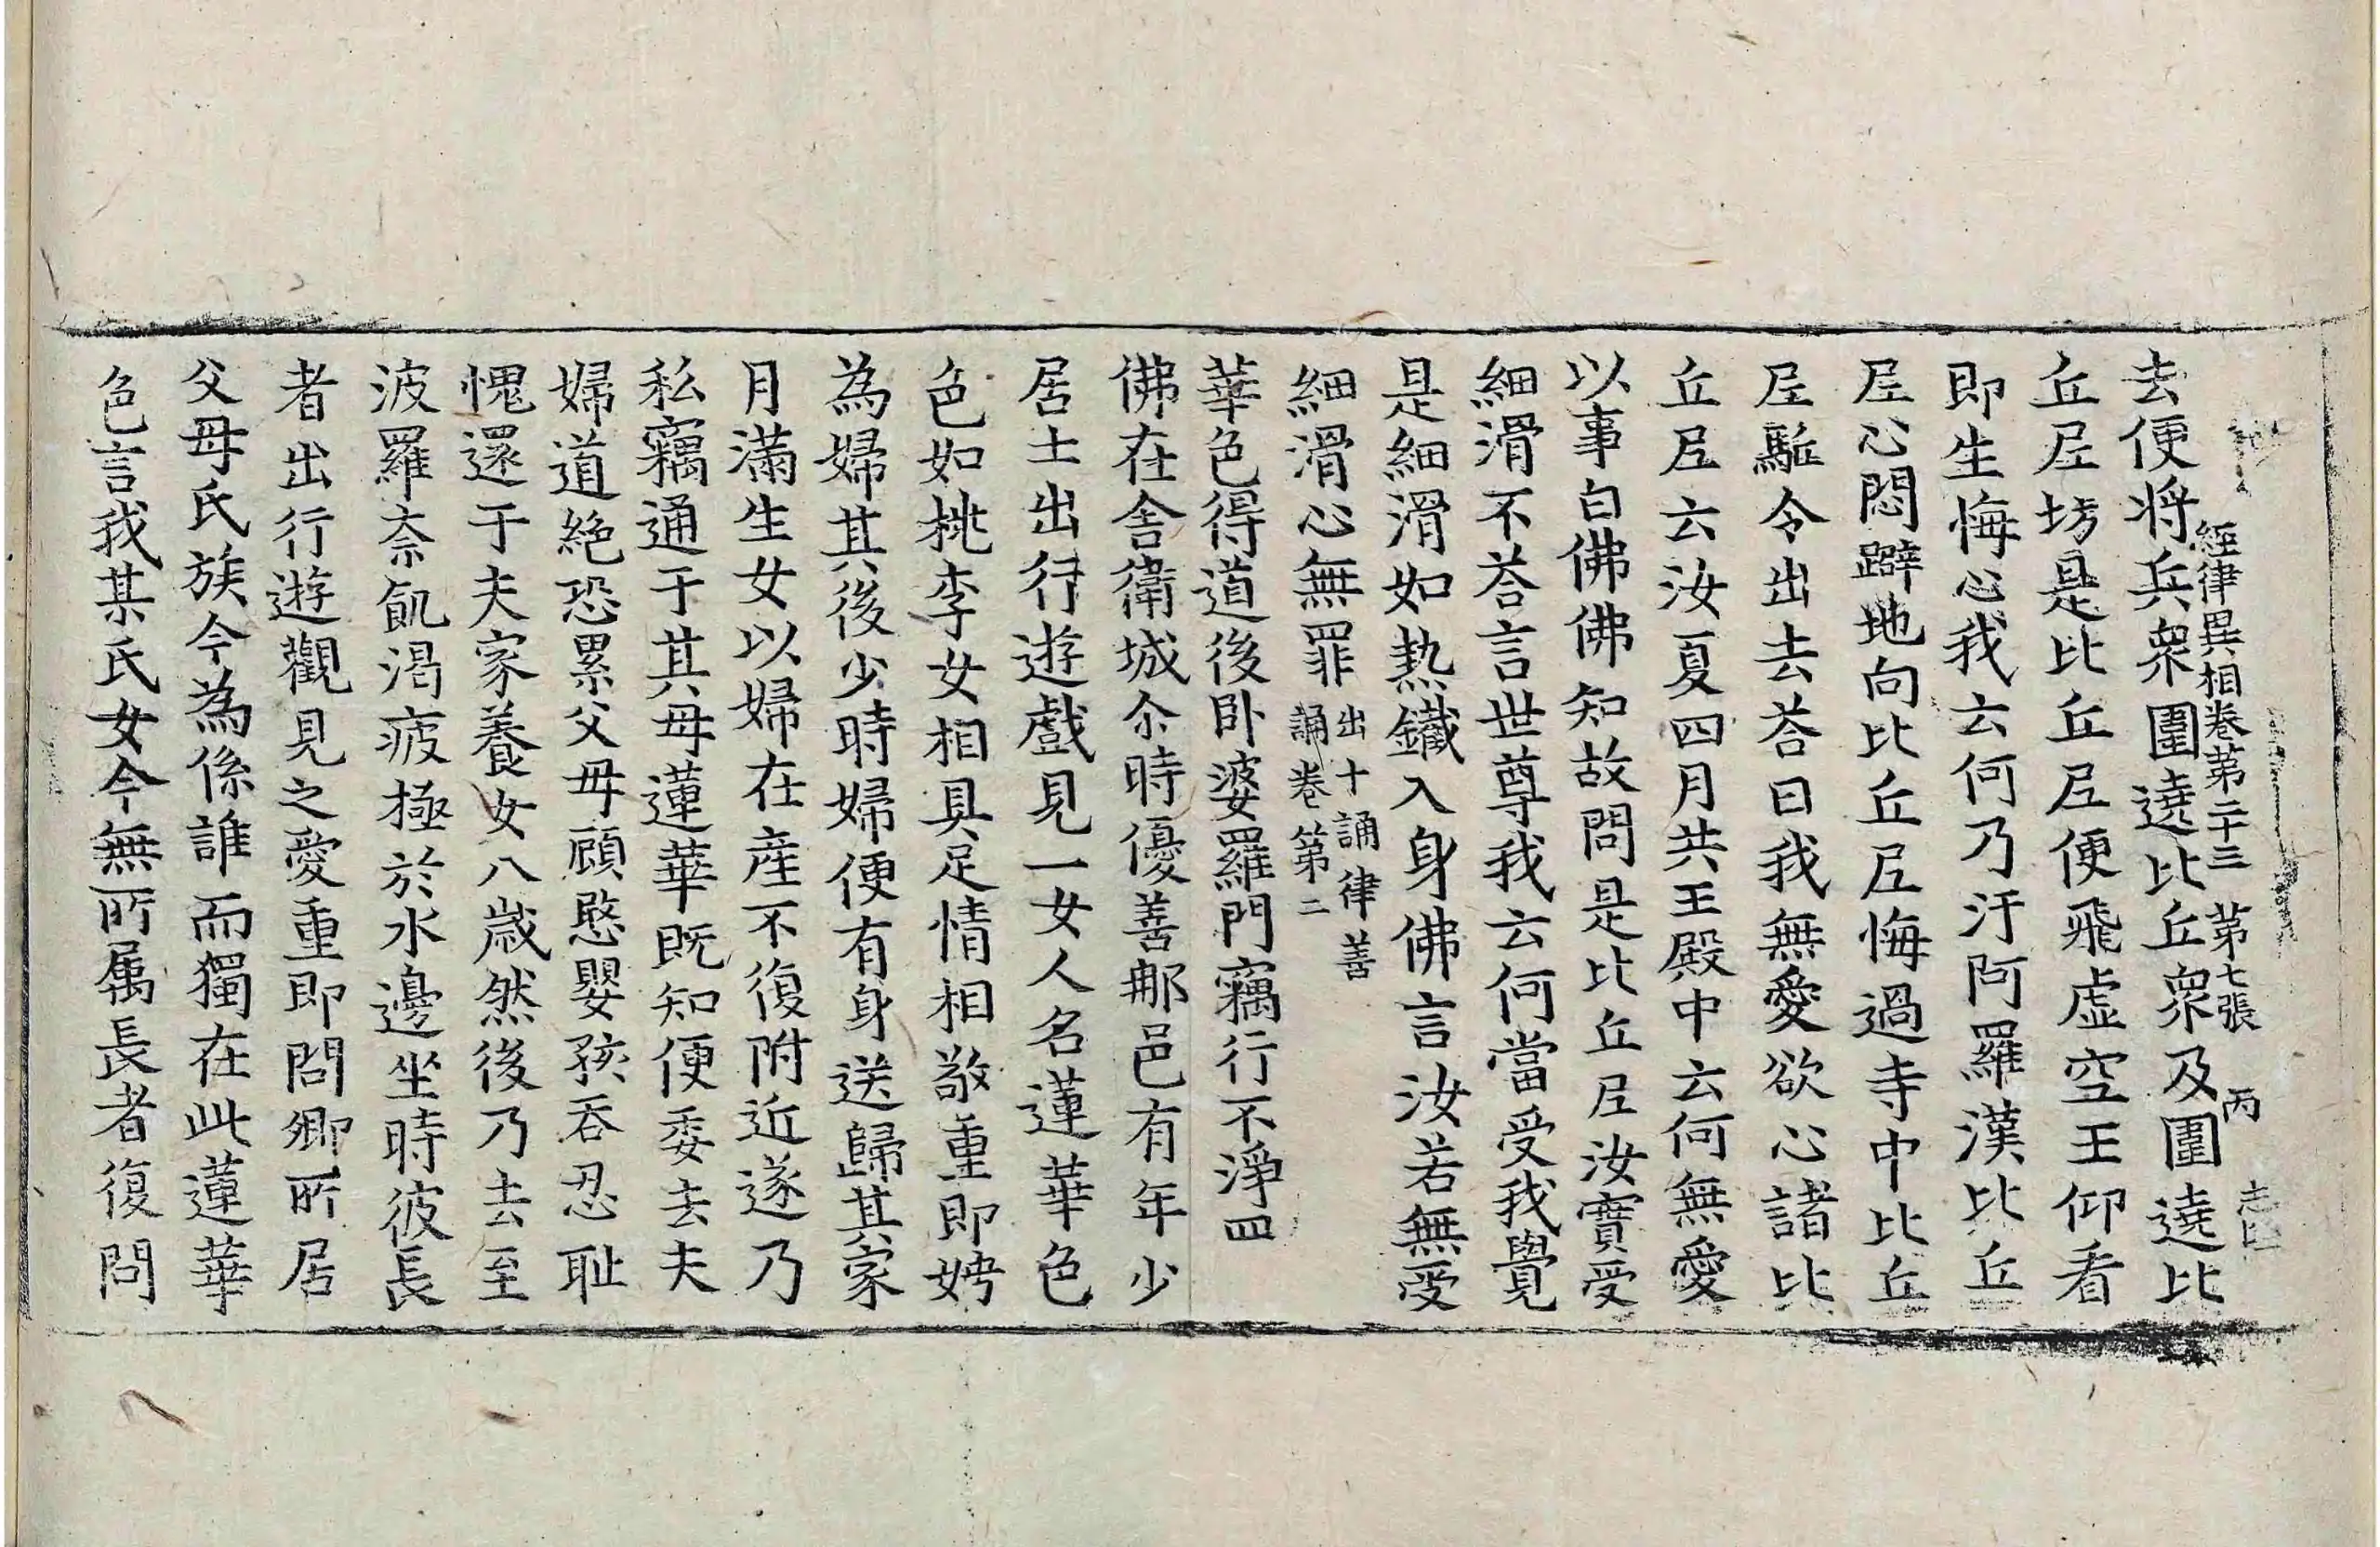 經律異相卷第二十三 第七張 丙
去便將兵衆圍遶比丘衆及圍遶比
丘𡰱坊是比丘𡰱便飛虛空王仰看
即生悔心我云何乃汙阿羅漢比丘
𡰱心悶躃地向比丘𡰱悔過寺中比丘
𡰱驅令出去荅曰我無愛欲心諸比
丘𡰱云汝夏四月共王殿中云何無愛
以事白佛佛知故問是比丘𡰱汝實受
細滑不荅言世尊我云何當受我覺
是細滑如熱鐵入身佛言汝若無受
細滑心無罪 出十誦律善
誦卷第二
華色得道後卧婆羅門竊行不淨四
佛在舍衛城尒時優善那邑有年少
居士出行遊戲見一女人名蓮華色
色如桃李女相具足情相敬重即娉
為婦其後少時婦便有身送歸其家
月滿生女以婦在產不復附近遂乃
私竊通于其母蓮華既知便委去夫
婦道絕恐累父母顧愍嬰孩吞忍恥
愧還于夫家養女八歲然後乃去至
波羅柰飢渴疲極於水邊坐時彼長
者出行遊觀見之愛重即問卿所居
父母氏族今為係誰而獨在此蓮華
色言我某氏女今無所屬長者復問